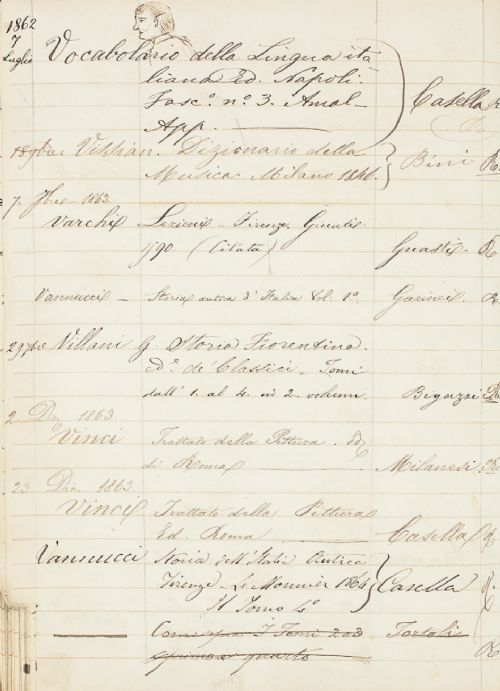 1862
7
Luglio
Vocabolario della Lingua ita
liana Ed. Napoli.
Fasc.º n.º 3. Amal-
App.
Casella R
R
Vissian. Dizionario della
Musica. Milano 1846.
Bini R.
7. 7bre 1863.
Varchi Lezioni - Firenze Giunti
1590 (Citata) Guasti - R
Vannucci - Storia antica d'Italia Vol. 1º. Garinei.
29 7bre Villani G. Storia Fiorentina.
ed.e de' Classici. Tomi
dall' 1. al 4. in 2. volumi. Bigazzi R
2 Dic 1863.
Vinci Trattato della Pittura. Ed
di Roma Milanesi
23 Dic. 1863.
Vinci Trattato della Pittura
Ed. Roma Casella
Vannucci Storia dell'Italia Antica
Firenze Le Monnier 1864 Casella
Il Tomo 4º
I Tomi 2 o 3 Tortoli
primo e quarto
R